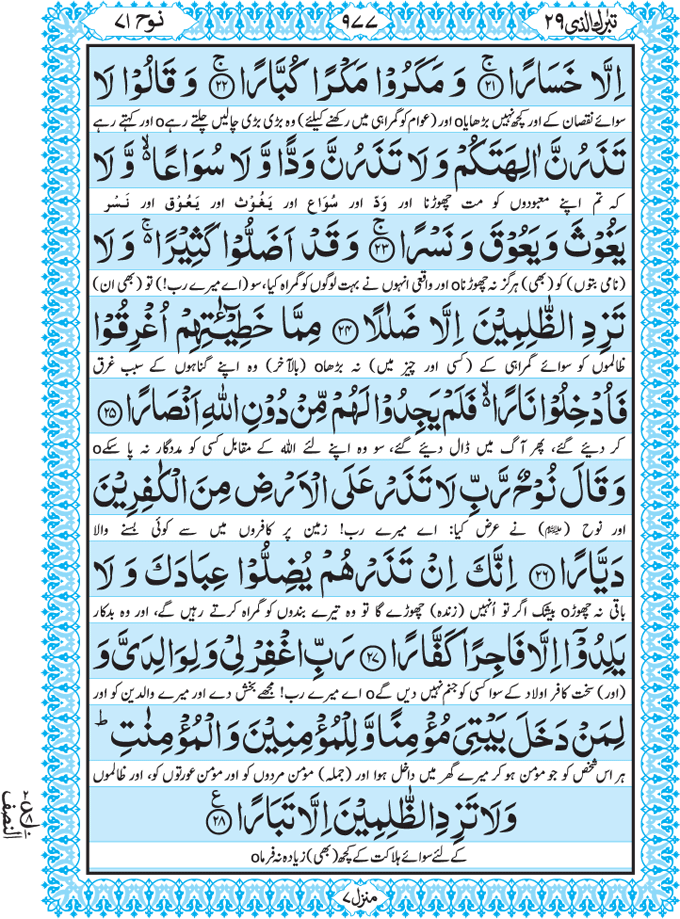 تبٰرك الذی ٢٩
٩٧٧
نوح ٧١
اِلَّا خَسَارًا ۚ﴿٢١﴾ وَ مَكَرُوْا مَكْرًا كُبَّارًا ۚ﴿٢٢﴾ وَ قَالُوْا لَا
سوائے نقصان کے اور کچھ نہیں بڑھایاo اور (عوام کو گمراہی میں رکھنے کیلئے) وہ بڑی بڑی چالیں چلتے رہےo اور کہتے رہے
تَذَرُنَّ اٰلِهَتَكُمْ وَ لَا تَذَرُنَّ وَدًّا وَّ لَا سُوَاعًا ۙ وَّ لَا
کہ تم اپنے معبودوں کو مت چھوڑنا اور وَدّ اور سُوَاع اور یَغُوْث اور یَعُوْق اور نَسْر
يَغُوْثَ وَ يَعُوْقَ وَ نَسْرًا ۚ﴿٢٣﴾ وَ قَدْ اَضَلُّوْا كَثِيْرًا ۚ وَ لَا
(نامی بتوں) کو (بھی) ہرگز نہ چھوڑناo اور واقعی انہوں نے بہت لوگوں کو گمراہ کیا، سو (اے میرے رب!) تو (بھی ان)
تَزِدِ الظّٰلِمِيْنَ اِلَّا ضَلٰلًا ﴿٢٤﴾ مِمَّا خَطِيْٓـٰٔتِهِمْ اُغْرِقُوْا
ظالموں کو سوائے گمراہی کے (کسی اور چیز میں) نہ بڑھاo (بالآخر) وہ اپنے گناہوں کے سبب غرق
فَاُدْخِلُوْا نَارًا ۙ فَلَمْ يَجِدُوْا لَهُمْ مِّنْ دُوْنِ اللّٰهِ اَنْصَارًا ﴿٢٥﴾
کر دیئے گئے، پھر آگ میں ڈال دیئے گئے، سو وہ اپنے لئے اللہ کے مقابل کسی کو مددگار نہ پا سکےo
وَ قَالَ نُوْحٌ رَّبِّ لَا تَذَرْ عَلَى الْاَرْضِ مِنَ الْكٰفِرِيْنَ
اور نوح (ﷺ) نے عرض کیا: اے میرے رب! زمین پر کافروں میں سے کوئی بسنے والا
دَيَّارًا ﴿٢٦﴾ اِنَّكَ اِنْ تَذَرْهُمْ يُضِلُّوْا عِبَادَكَ وَ لَا
باقی نہ چھوڑo بیشک اگر تو اُنہیں (زندہ) چھوڑے گا تو وہ تیرے بندوں کو گمراہ کرتے رہیں گے، اور وہ بدکار
يَلِدُوْٓا اِلَّا فَاجِرًا كَفَّارًا ﴿٢٧﴾ رَبِّ اغْفِرْ لِيْ وَ لِوَالِدَيَّ وَ
(اور) سخت کافر اولاد کے سوا کسی کو جنم نہیں دیں گےo اے میرے رب! مجھے بخش دے اور میرے والدین کو اور
لِمَنْ دَخَلَ بَيْتِيَ مُؤْمِنًا وَّ لِلْمُؤْمِنِيْنَ وَ الْمُؤْمِنٰتِ ؕ
ہر اس شخص کو جو مومن ہو کر میرے گھر میں داخل ہوا اور (جملہ) مومن مردوں کو اور مومن عورتوں کو، اور ظالموں
وَ لَا تَزِدِ الظّٰلِمِيْنَ اِلَّا تَبَارًا ﴿٢٨﴾ ع
کے لئے سوائے ہلاکت کے کچھ (بھی) زیادہ نہ فرماo
النصف
منزل ٧